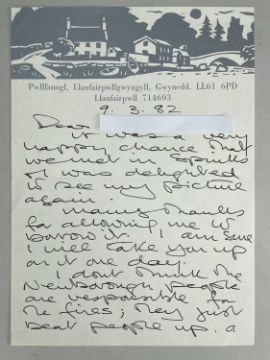 Pwllfanogl, Llanfairpwllgwyngyll, Gwynedd. LL61 6PD
Llanfairpwll 714693
9. 3. 82
Dear
It was a very
happy chance that
we met in
I was delighted
to see my picture
again.
Many thanks
for allowing me to
borrow it. I am sure
I will take you up
on it one day.
I dont think the
Newborough people
are responsible for
the fires; they just
beat people up. a